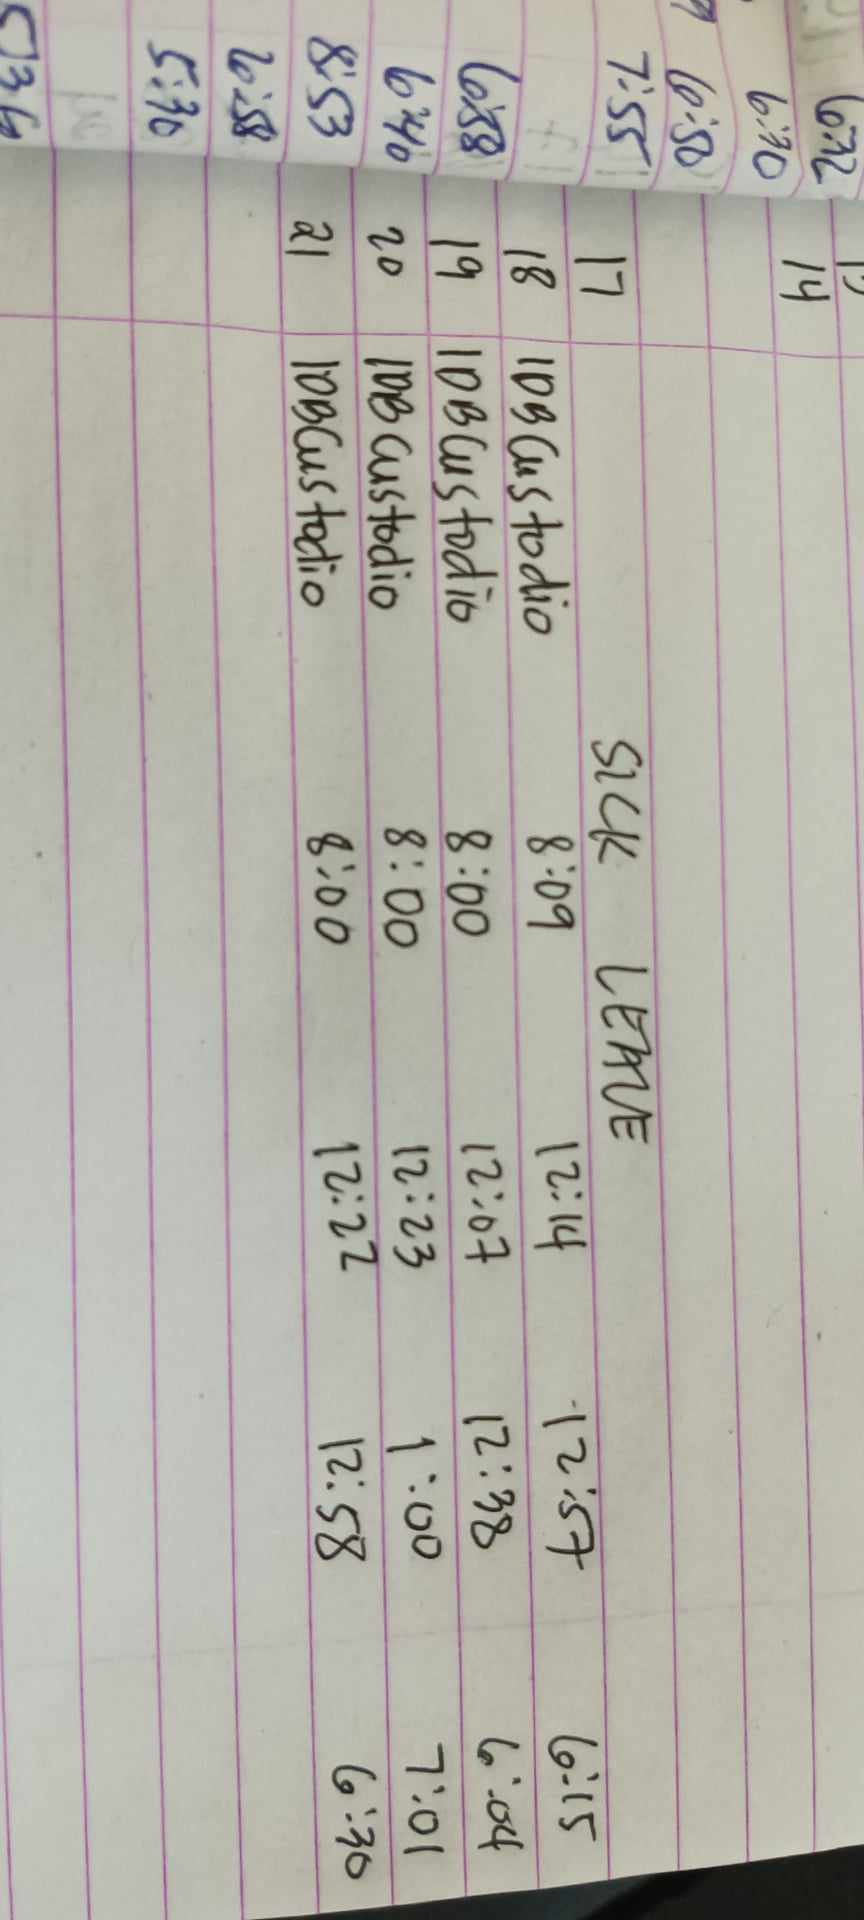 6:32
6:30
6:50
7:55
6:58
6:40
8:53
6:58
5:30
536
14
17 SICK LEAVE
18 IDBCustodio 8:09 12:14 12:57 6:15
19 IDBCustodio 8:00 12:07 12:38 6:04
20 IDBCustodio 8:00 12:23 1:00 7:01
21 IDBCustodio 8:00 12:22 12:58 6:30